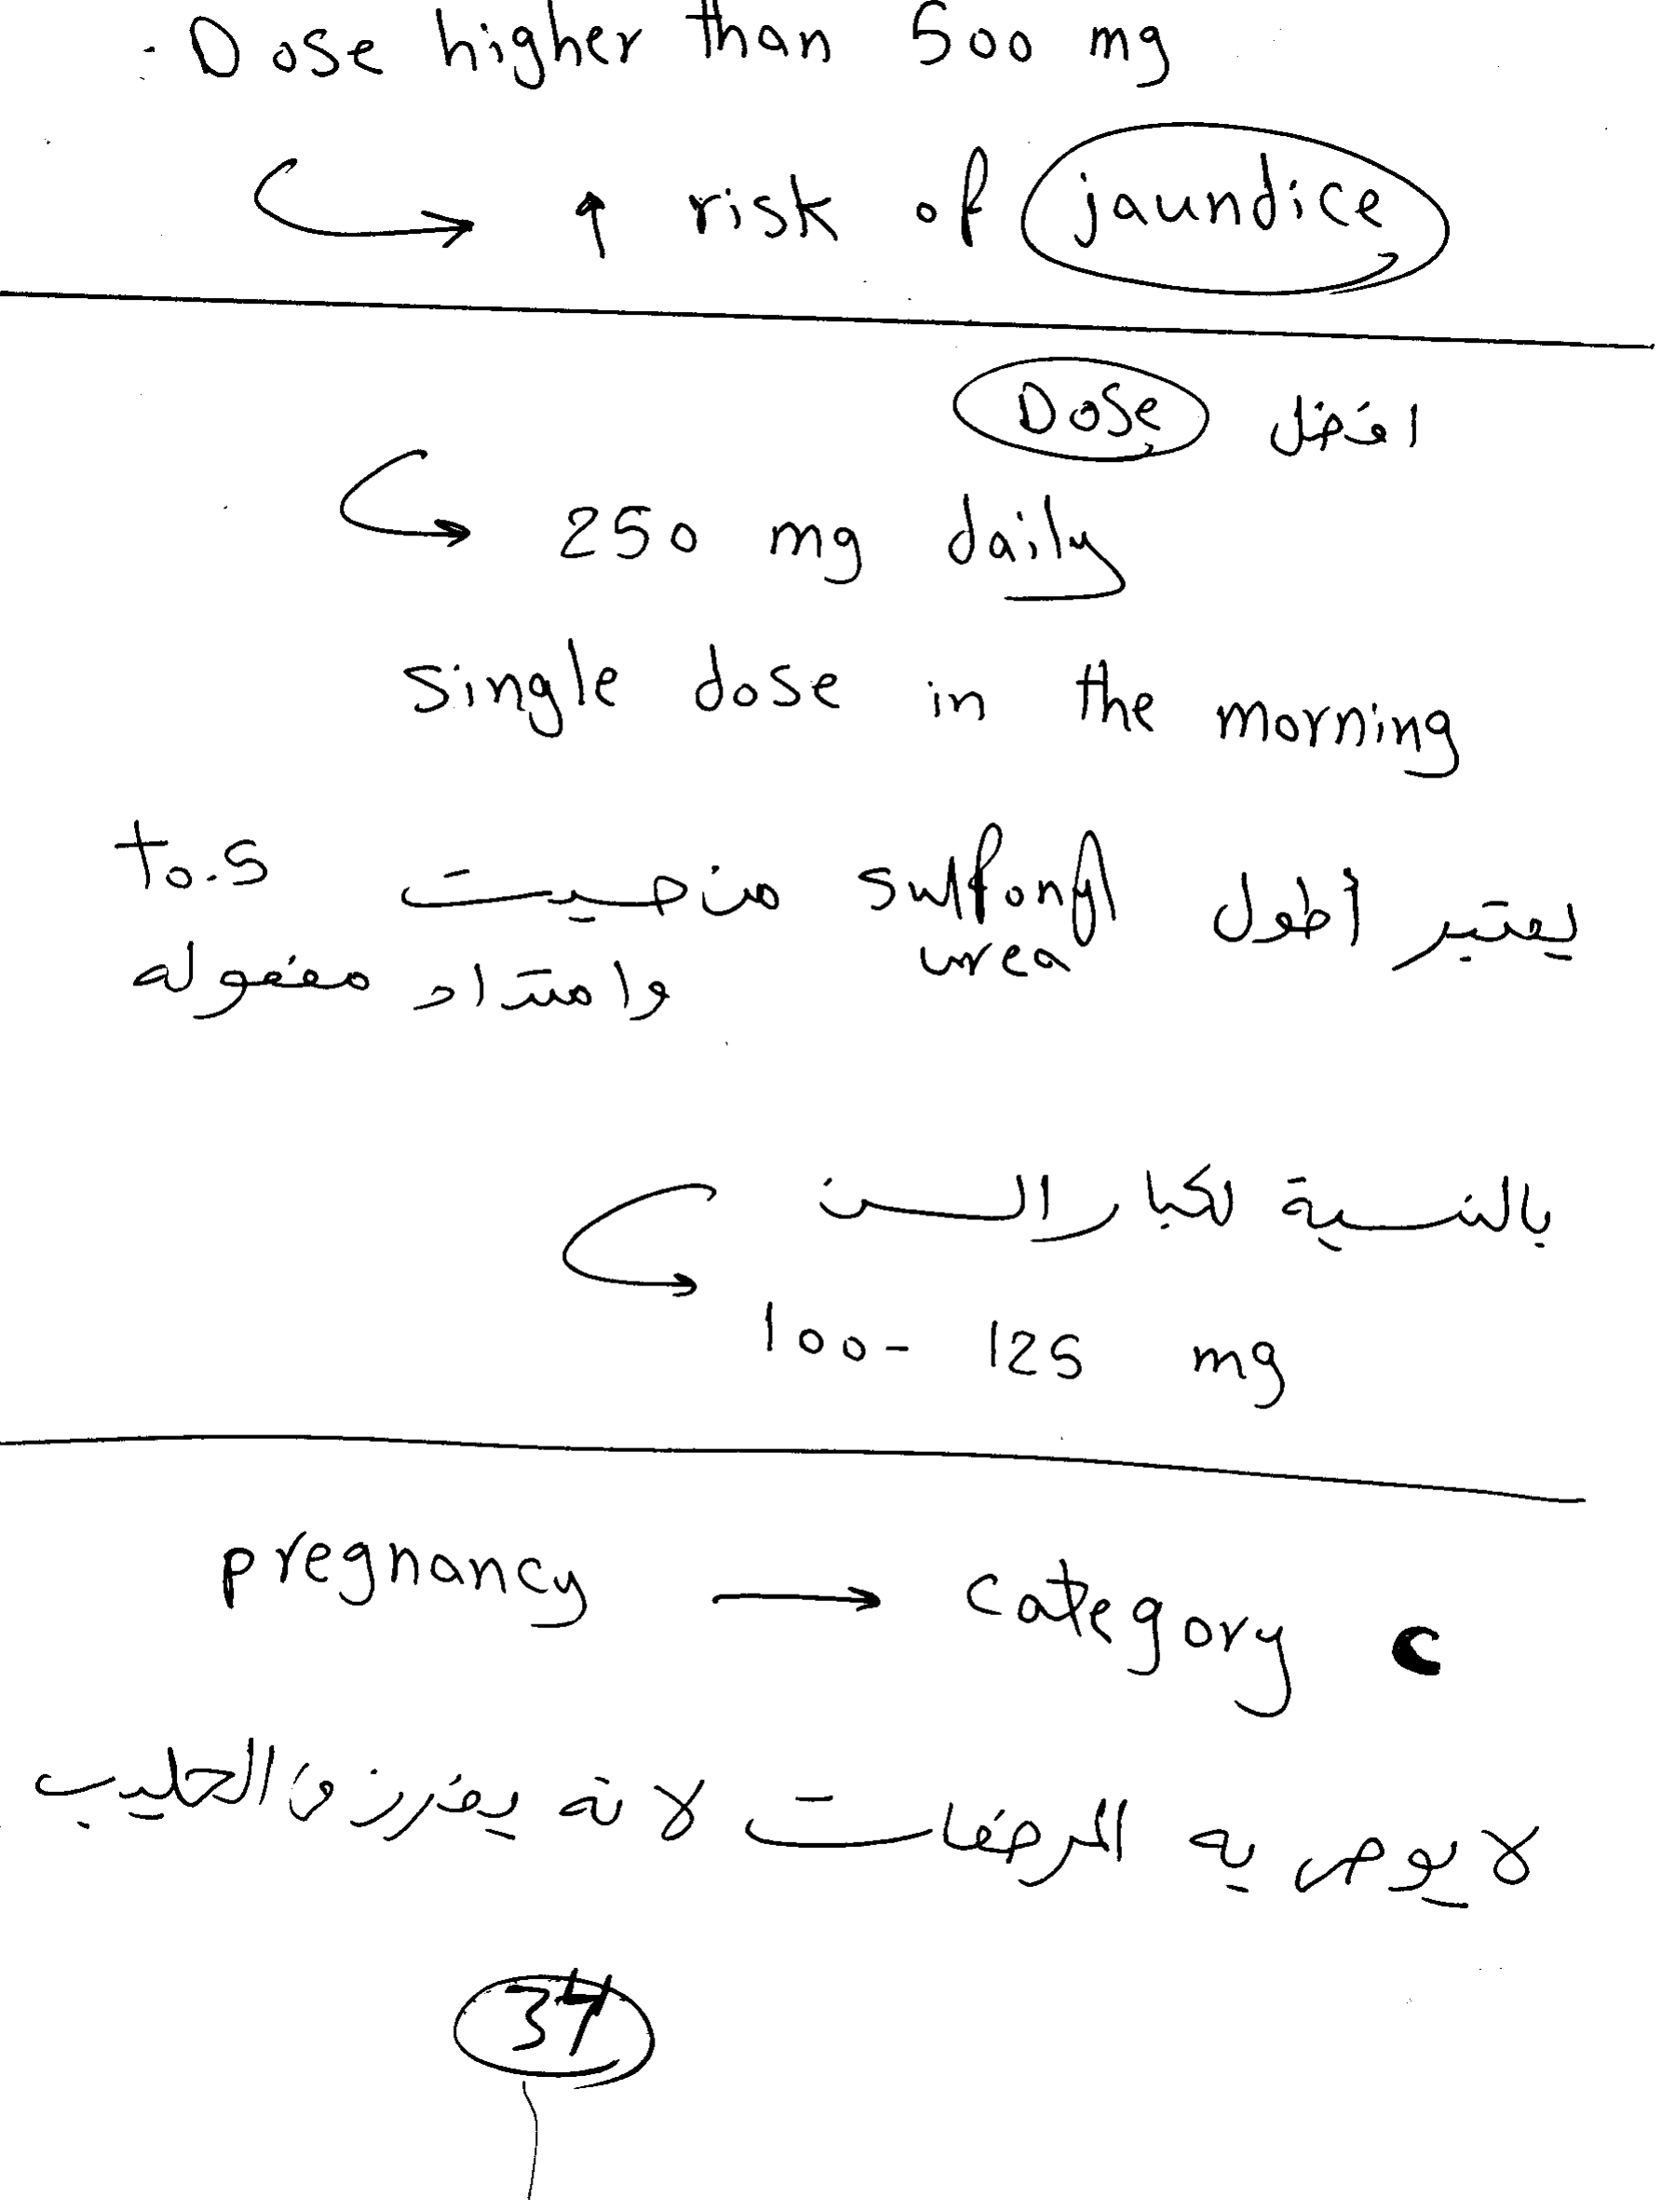 - Dose higher than 500 mg
↑ risk of jaundice
افضل Dose
250 mg daily
single dose in the morning
يعتبر أطول sulfonyl urea من حيث t0.5
وامتداد مفعوله
بالنسبة لكبار السن
100- 125 mg
pregnancy → category C
لا يوص به المرضعات لانه يفرز في الحليب
34